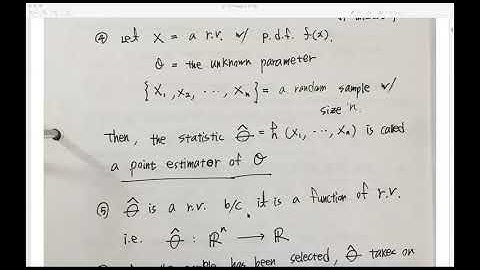 ④ Let X = a r.v. w/ p.d.f. f(x).
θ = the unknown parameter
{X₁, X₂, ⋯, Xₙ} = a random sample w/
size n.
Then, the statistic Θ̂ = h(X₁, ⋯, Xₙ) is called
a point estimator of θ
⑤ Θ̂ is a r.v. b/c it is a function of r.v.
i.e. Θ̂ : ℝⁿ → ℝ
has been selected, Θ̂ takes on